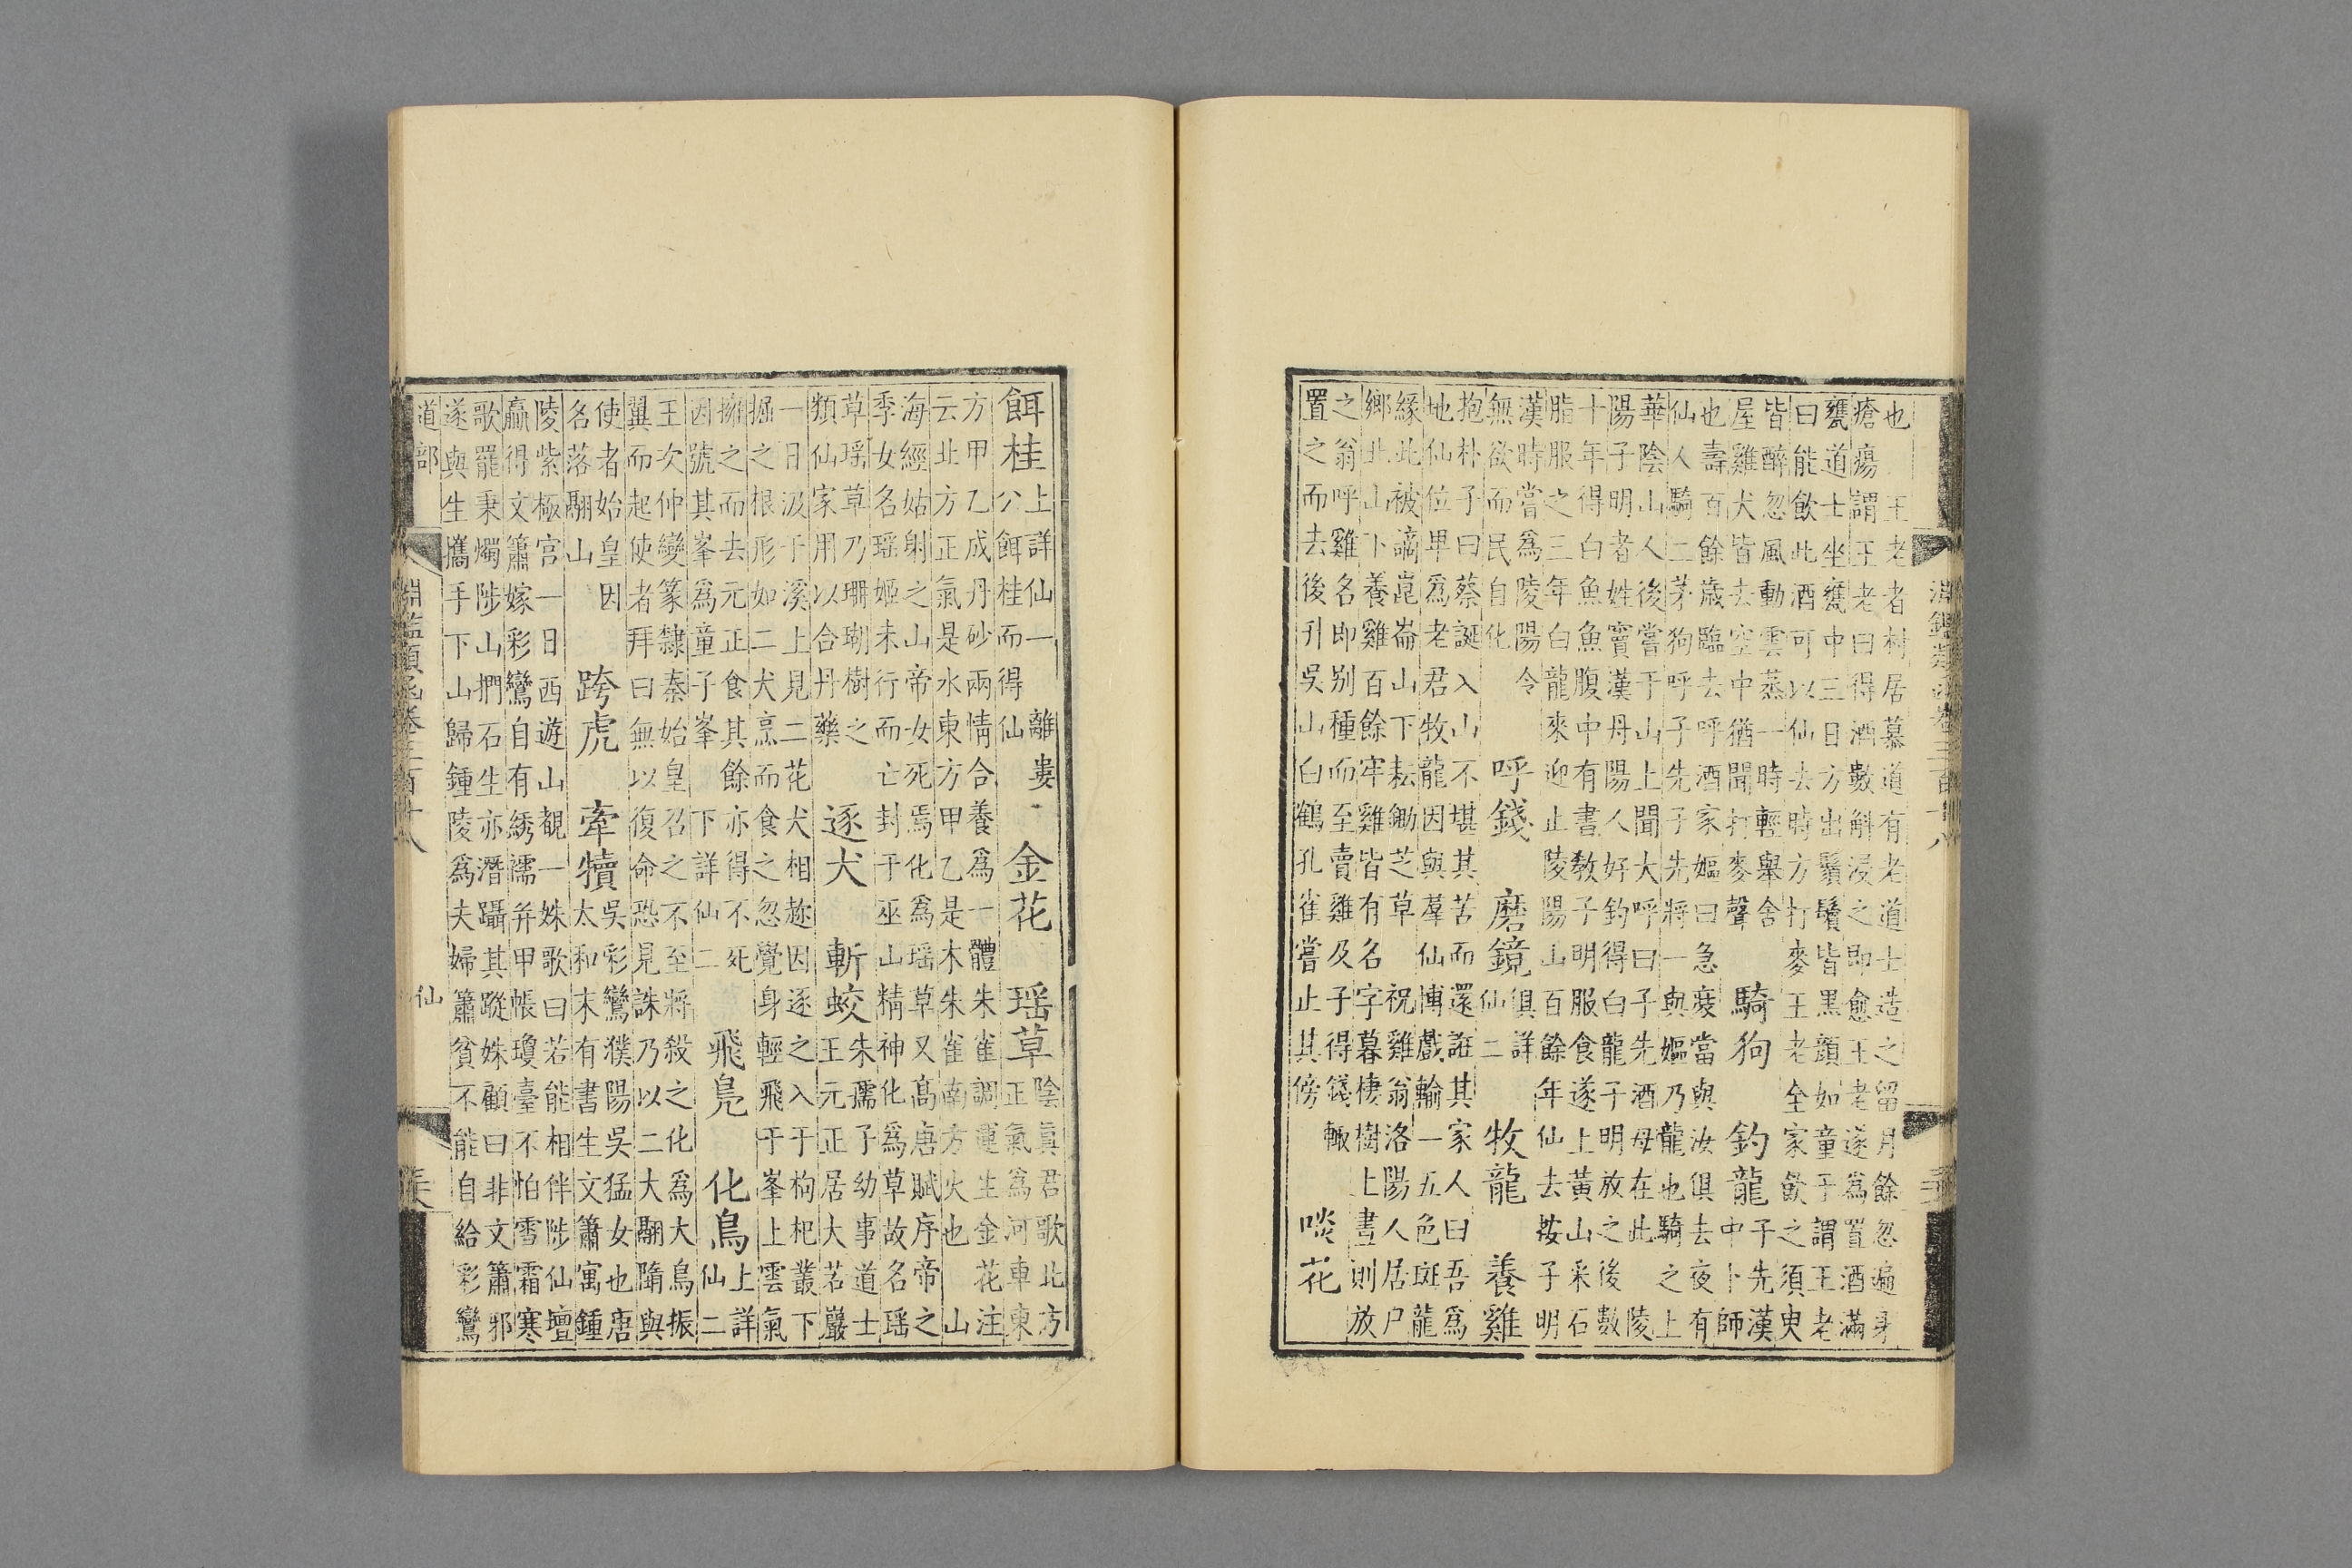 淵鑑類函卷三百十八
也 王老者村居慕道有老道士造之留月餘忽遍身
瘡瘍 謂王老曰得酒數斛浸之即愈王老遂爲置酒滿
甕道士坐甕中三日方出鬚鬢皆黑顔如童子謂王老
曰能飲此酒可以仙去時方打麥王老全家飲之須臾
皆醉忽風動雲蒸一時輕舉舍
屋雞犬皆去空中猶聞打麥聲
騎狗 釣龍
子先漢
中卜師
也壽百餘歲臨去呼酒家嫗曰急裝當與汝俱去夜有
仙人騎二茅狗呼子先子先將一與嫗乃龍也騎之上
華陰山人後嘗于山上聞大呼曰子先酒母在此 陵
陽子明者姓竇漢丹陽人好釣得白龍子明放之後數
十年得白魚魚腹中有書教子明服食遂上黃山采石
脂服之三年白龍來迎止陵陽山百餘年仙去按子明
漢時嘗爲陵陽令
無欲而民自化
呼錢 磨鏡
俱詳
仙二
牧龍 養雞
抱朴子曰蔡誕入山不堪其苦而還誑其家人曰吾爲
地仙位卑爲老君牧龍因與羣仙博戲輸一五色斑龍
緣此被謫崑崙山下耘鋤芝草 祝雞翁洛陽人居尸
鄉北山下養雞百餘年雞皆有名字暮棲樹上晝則放
之翁呼雞名即別種而至賣雞及子得錢輙
置之而去後升吳山白鶴孔雀嘗止其傍
啖花
餌桂
上詳仙一 離婁
公餌桂而得仙
金花 瑤草
陰眞君歌北方
正氣爲河車東
方甲乙成丹砂兩情合養爲一體朱雀調運生金花注
云北方正氣是水東方甲乙是木朱雀南方火也 山
海經姑射之山帝女死焉化爲瑤草又高唐賦序帝之
季女名瑤姬未行而亡封于巫山精神化爲草故名瑤
草瑤草乃珊瑚樹之
類仙家用以合丹藥
逐犬 斬蛟
朱孺子幼事道士
王元正居大若巖
一日汲于溪上見二花犬相趂因逐之入于枸杞叢下
掘之根形如二犬烹而食之忽覺身輕飛于峯上雲氣
擁之而去元正食其餘亦得不死
因號其峯爲童子峯 下詳仙二
飛鳧 化鳥
上詳
仙二
王次仲變篆隸秦始皇召之不至將殺之化爲大鳥振
翼而起使者拜曰無以復命恐見誅乃以二大翮隋與
使者始皇因
名落翮山
跨虎 牽犢
吳彩鸞濮陽吳猛女也唐
太和末有書生文簫寓鍾
陵紫極宮一日西遊山觀一姝歌曰若能相伴陟仙壇
贏得文簫嫁彩鸞自有綉襦并甲帳瓊臺不怕雪霜寒
歌罷秉燭陟山捫石生亦潛躡其蹤姝顧曰非文簫邪
遂與生攜手下山歸鍾陵爲夫婦簫貧不能自給彩鸞
道部 淵鑑類函卷三百十八 仙